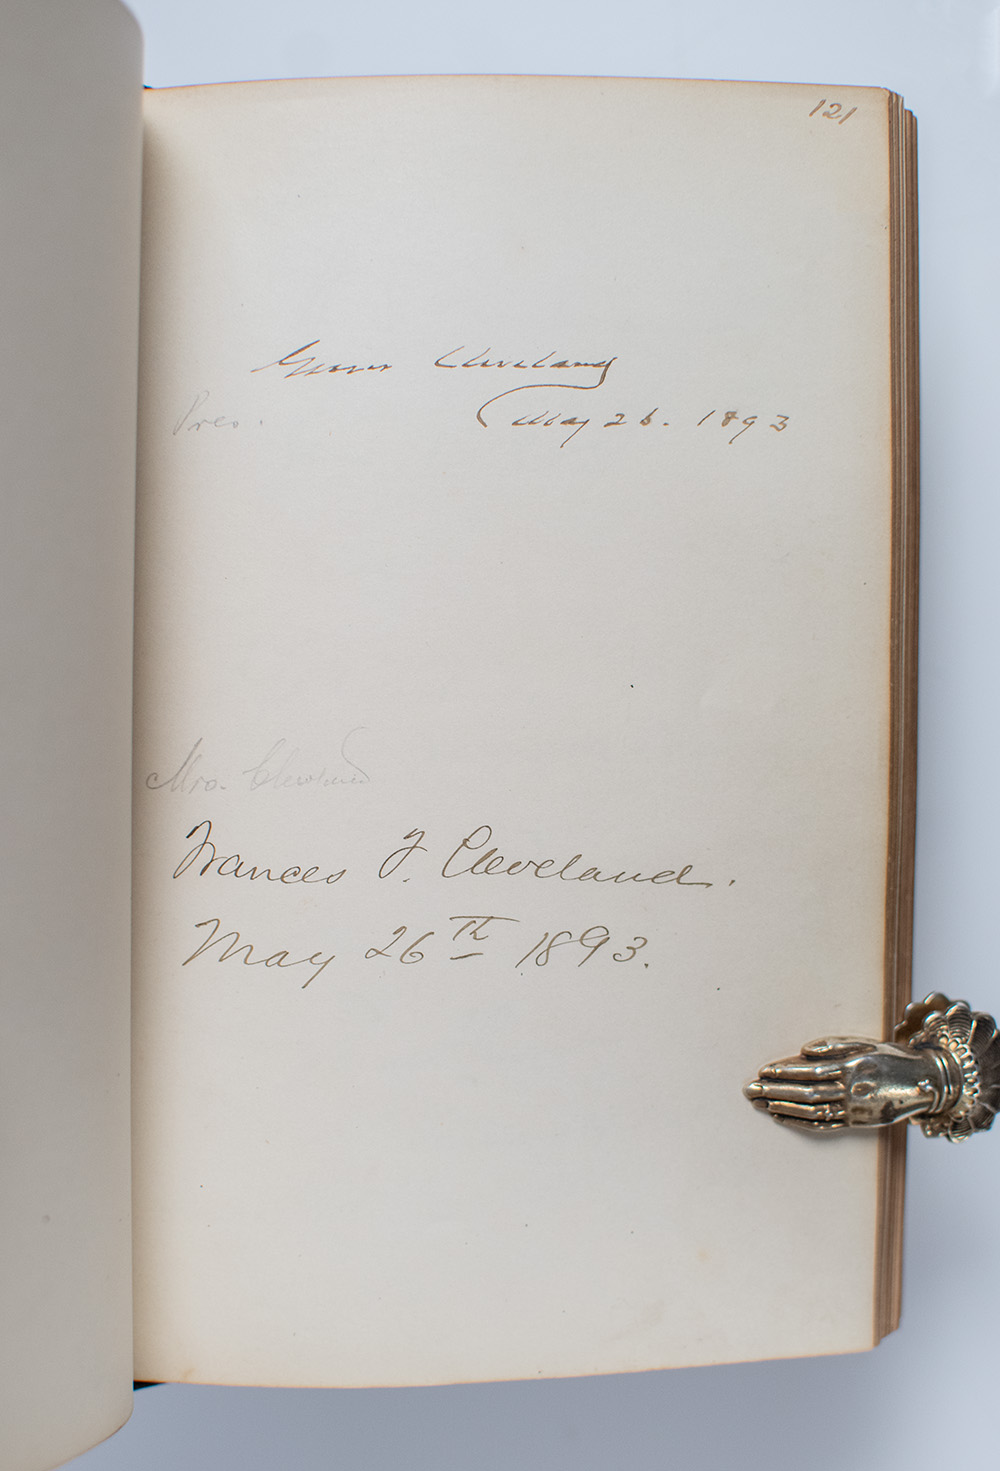 121
Grover Cleveland
Pres.
May 26. 1893
Mrs. Cleveland
Frances F. Cleveland.
May 26th 1893.